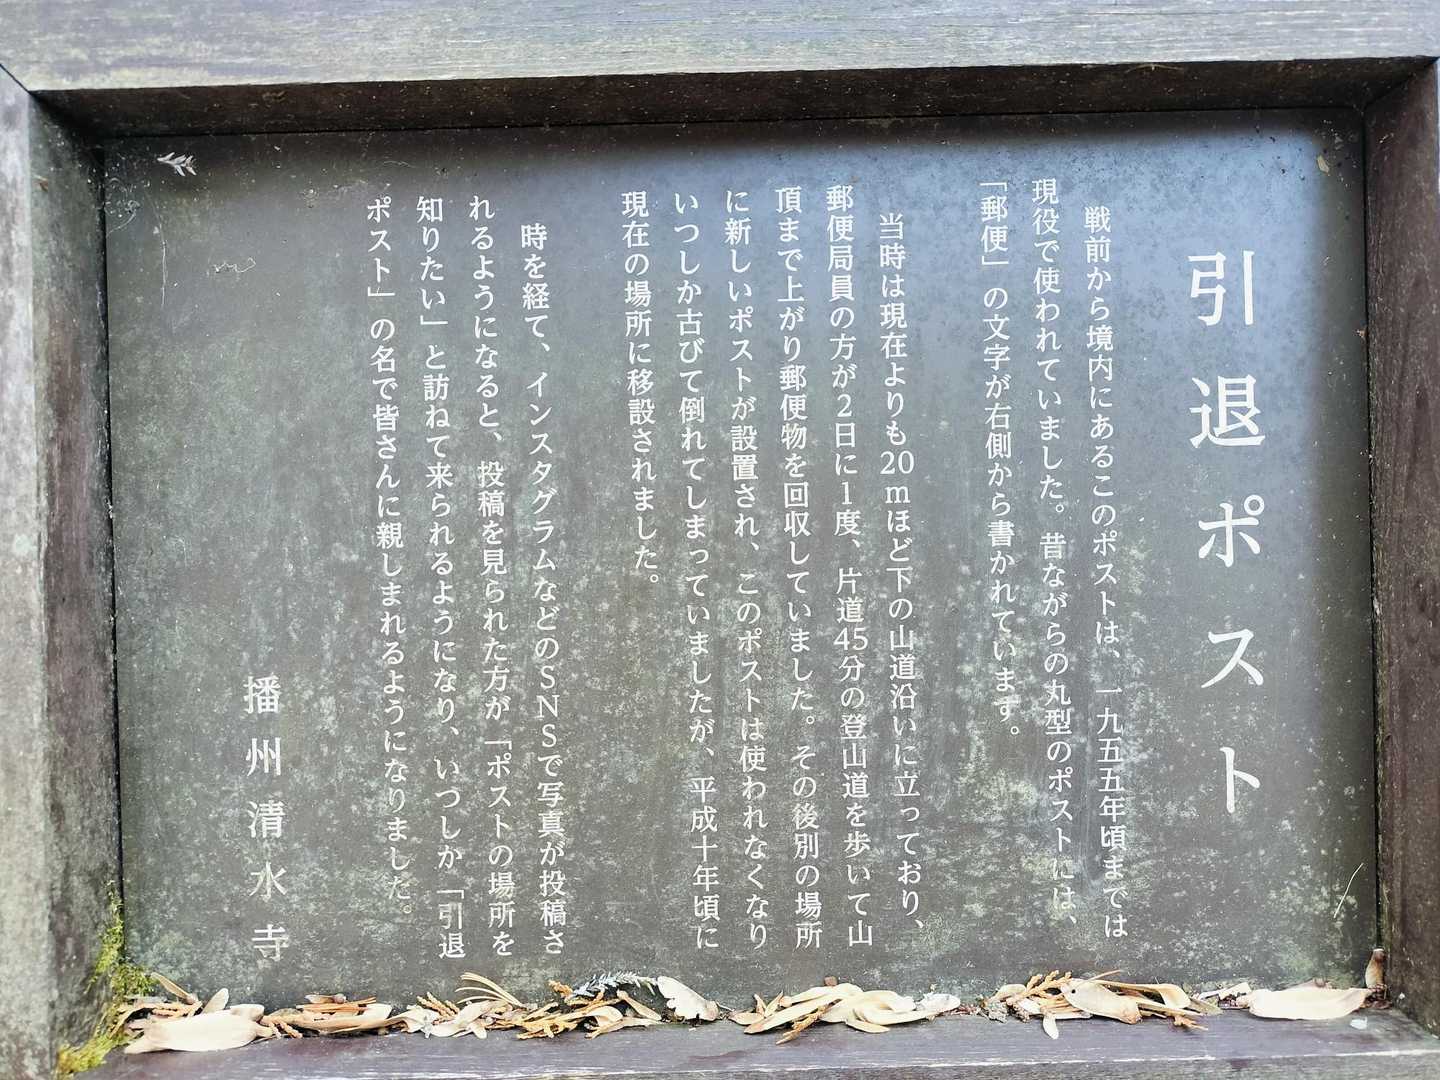 引退ポスト
戦前から境内にあるこのポストは、一九五五年頃までは
現役で使われていました。昔ながらの丸型のポストには、
「郵便」の文字が右側から書かれています。
当時は現在よりも20mほど下の山道沿いに立っており、
郵便局員の方が2日に1度、片道45分の登山道を歩いて山
頂まで上がり郵便物を回収していました。その後別の場所
に新しいポストが設置され、このポストは使われなくなり
いつしか古びて倒れてしまっていましたが、平成十年頃に
現在の場所に移設されました。
時を経て、インスタグラムなどのSNSで写真が投稿さ
れるようになると、投稿を見られた方が「ポストの場所を
知りたい」と訪ねて来られるようになり、いつしか「引退
ポスト」の名で皆さんに親しまれるようになりました。
播州清水寺